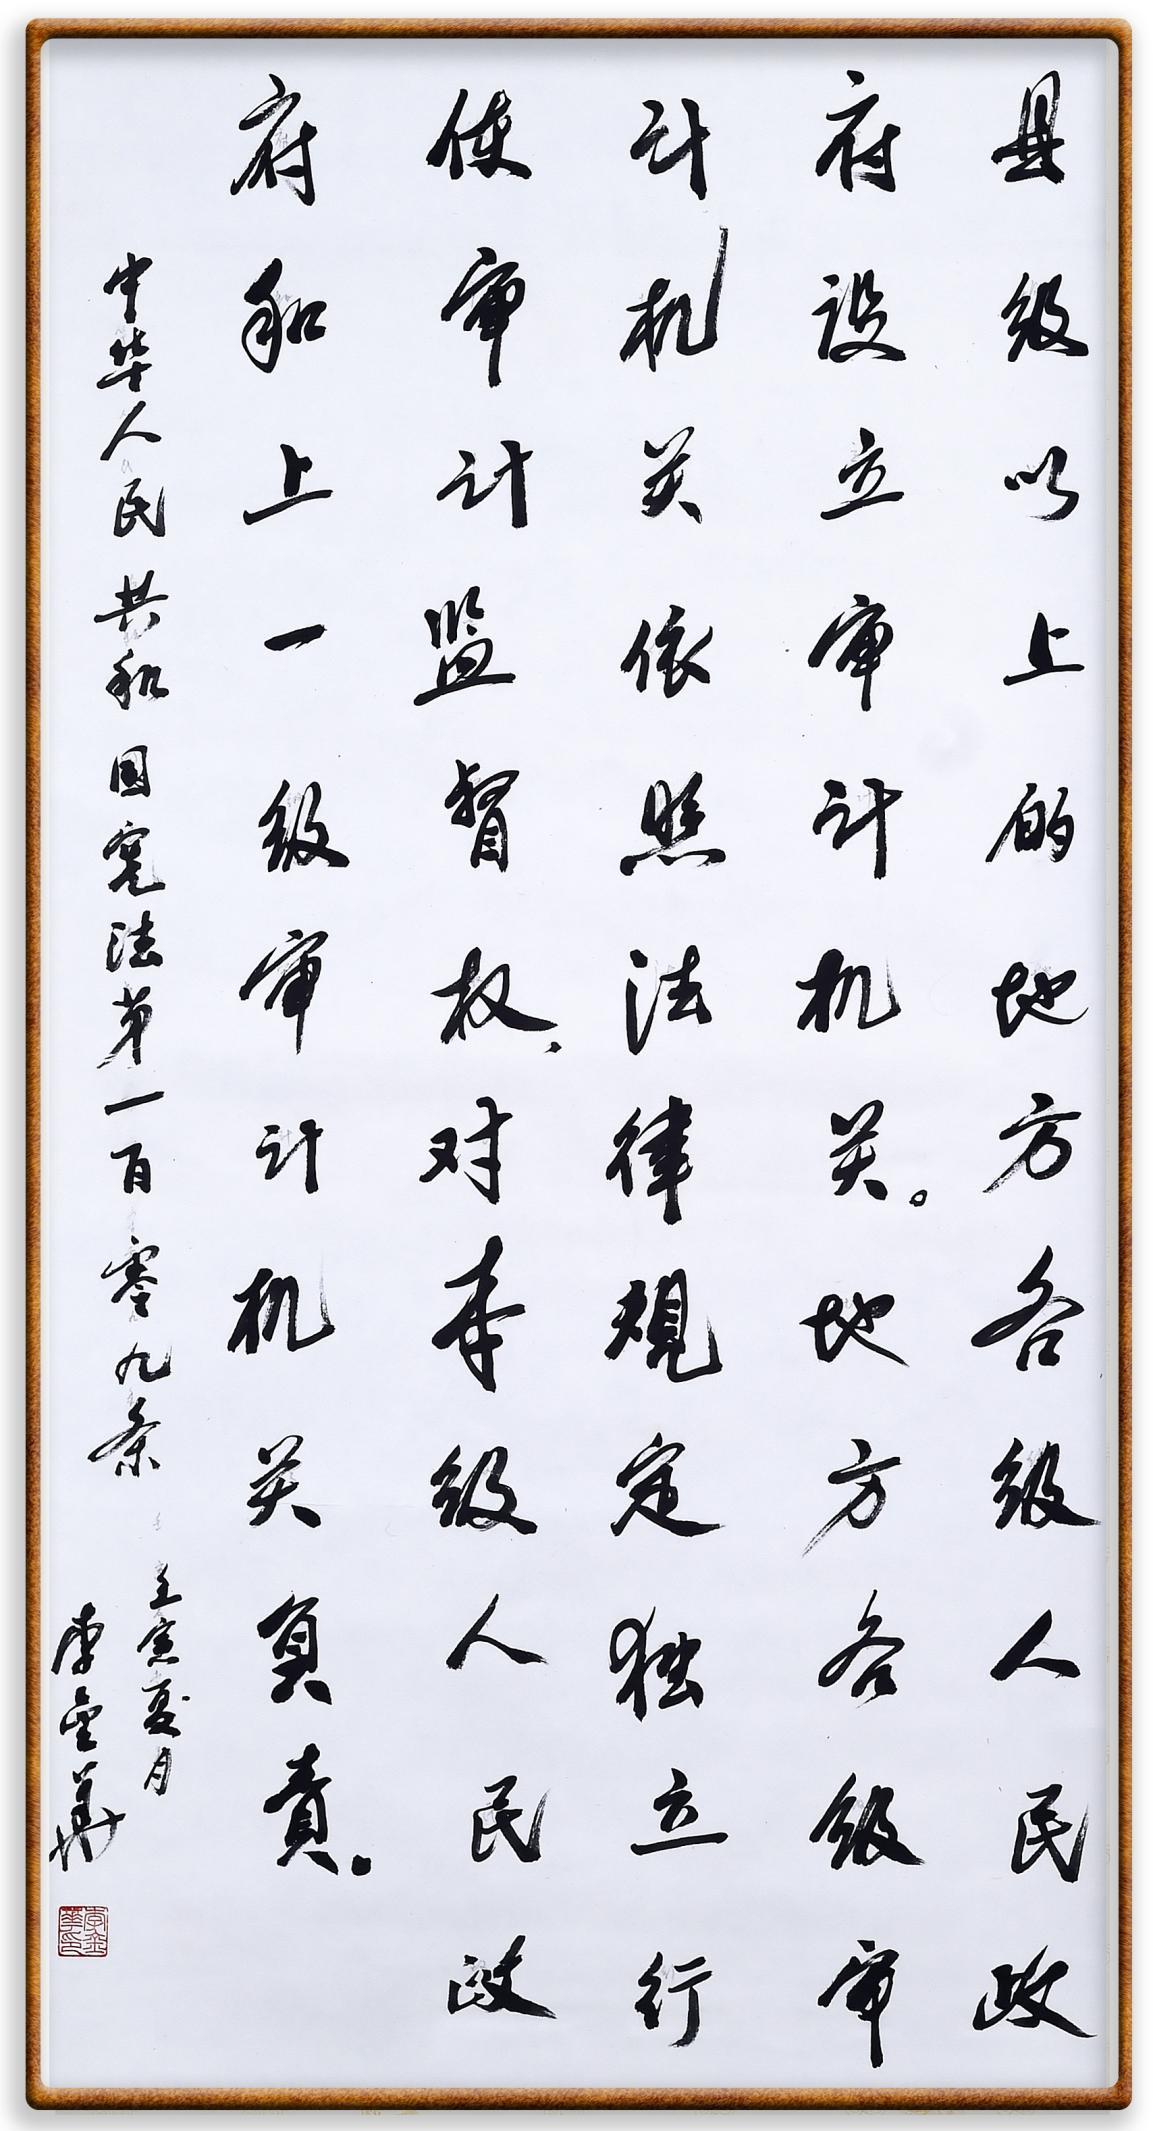 县级以上的地方各级人民政
府设立审计机关。地方各级审
计机关依照法律规定独立行
使审计监督权、对本级人民政
府和上一级审计机关负责。
中华人民共和国宪法第一百零九条
壬寅夏月
李金华
李金華印